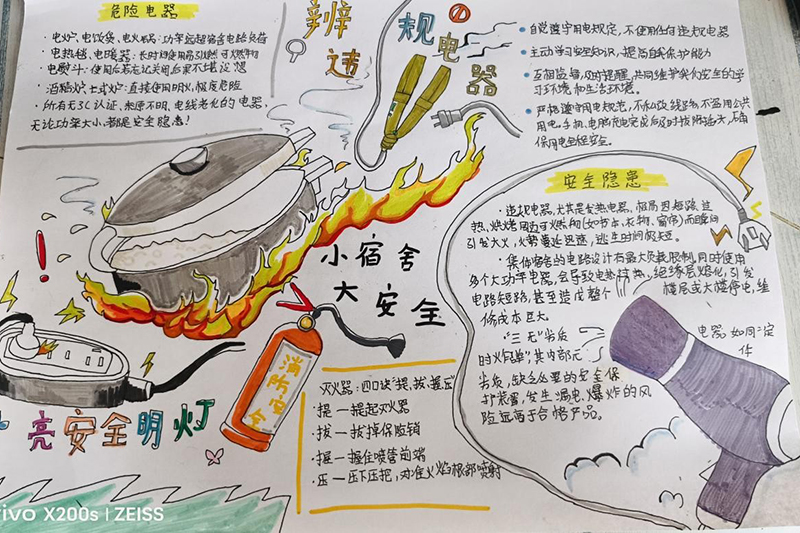 危险电器
· 电炉、电饭煲、电火锅：功率远超宿舍电路负荷
· 电热毯、电暖器：长时间使用易引燃可燃物
· 电熨斗：使用后若忘记关闭后果不堪设想
· 酒精炉、卡式炉：直接使用明火，极度危险
· 所有无3C认证、来源不明、电线老化的电器，
无论功率大小，都是安全隐患！
辨违
规电器
· 自觉遵守用电规定，不使用任何违规电器
· 主动学习安全知识，提高自救保护能力
· 互相监督，及时提醒，共同维护安全的学
习环境和生活环境。
· 严格遵守用电规范，不私改线路，不滥用公共
用电。手机、电脑充电完成后及时拔除插头，确
保用电绝安全。
安全隐患
· 违规电器，尤其是发热电器，极易因短路、过
热、烘烤周边可燃物（如书本、衣物、窗帘）而瞬间
引发大火，火势蔓延迅速，逃生时间极短。
· 集体宿舍的电路设计有最大负载限制，同时使用
多个大功率电器，会导致电线过热、绝缘层熔化，引发
电路短路，甚至造成整个
楼层或大楼停电，维
修成本巨大。
· "三无"劣质
电器，如同"定
时
体
劣质，缺乏必要的安全保
护装置，发生漏电、爆炸的风
险远高于合格产品。
小宿舍
大安全
消防安全
灭火器：四口诀"提、拔、握、压"
· 提—提起灭火器
· 拔—拔掉保险销
· 握—握住喷管前端
· 压—压下压把，对准火焰根部喷射
亮安全明灯
vivo X200s | ZEISS